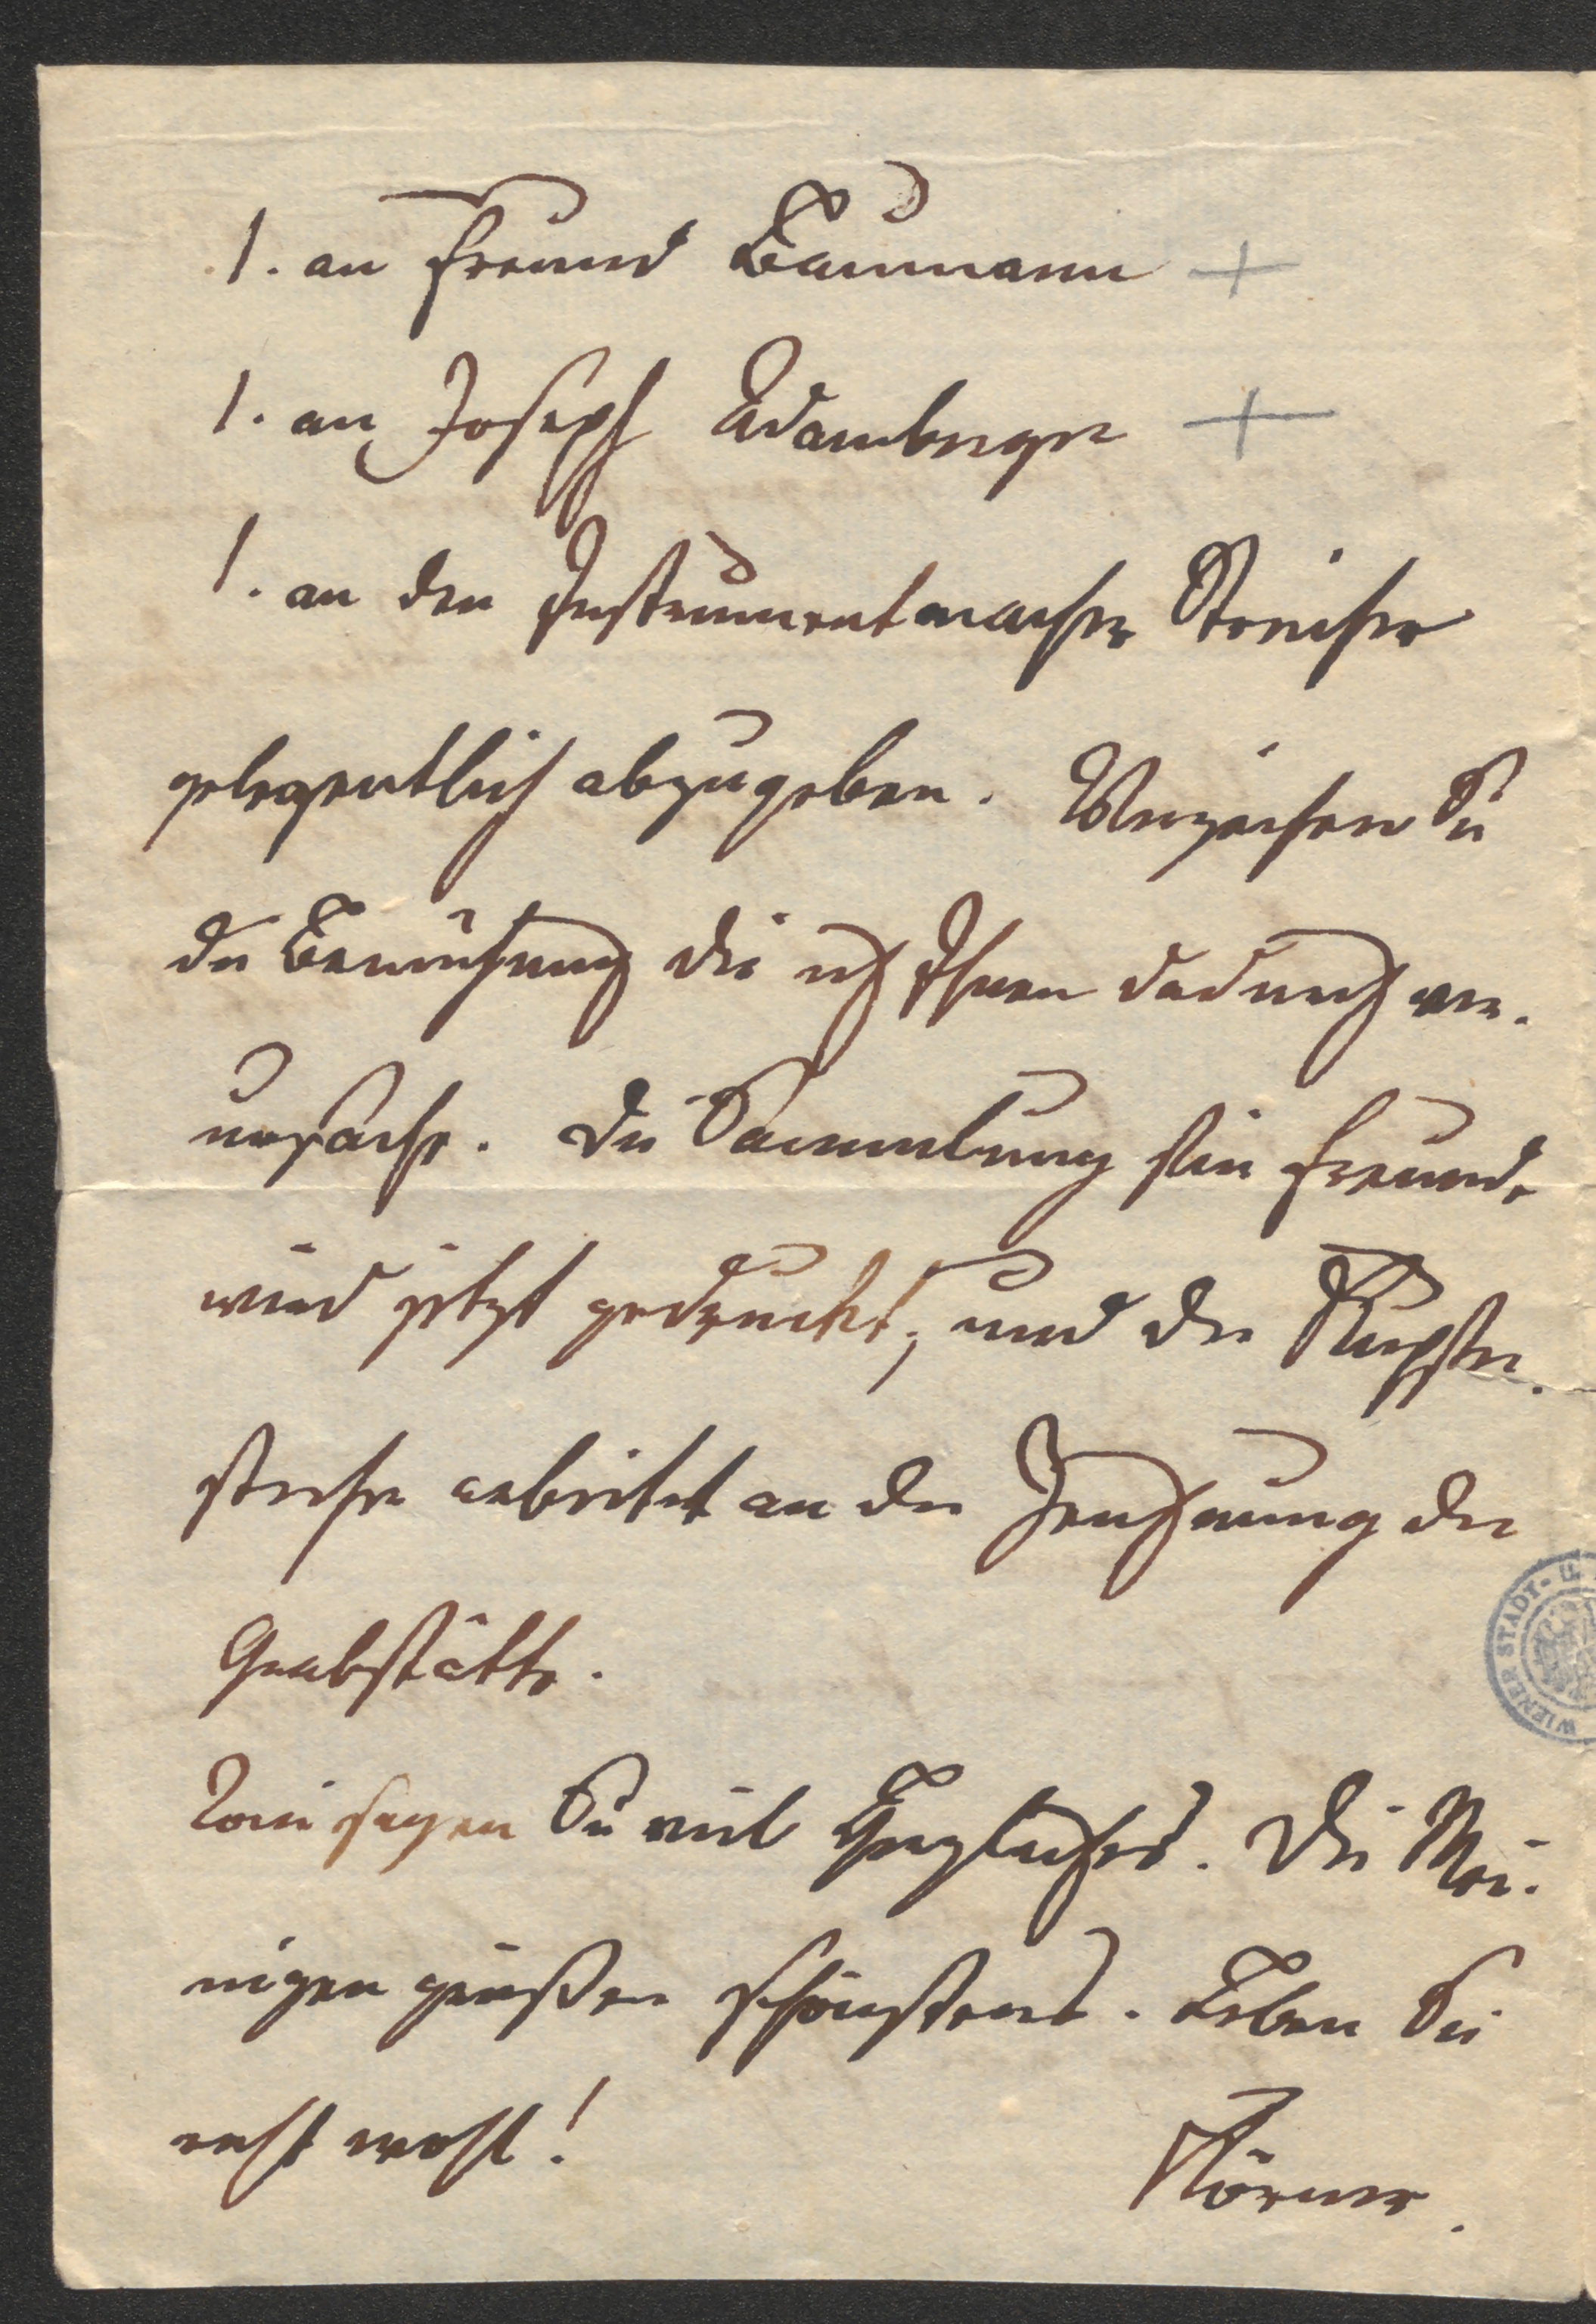 1. an Freund Baumann +
1. an Joseph Adamberger +
1. an den Instrumentmacher Streicher
gelegentlich abzugeben. Verzeihen Sie
die Bemühung die ich Ihnen dadurch ver-
ursache. Die Sammlung für Freunde
wird jetzt gedruckt, und der Kupfer-
stecher arbeitet an der Zeichnung der
Grabstätte.
Toni sagen Sie viel Herzliches. Die Mei-
nigen grüßen schönstens. Leben Sie
recht wohl!
Körner.
WIENER STADT- U.